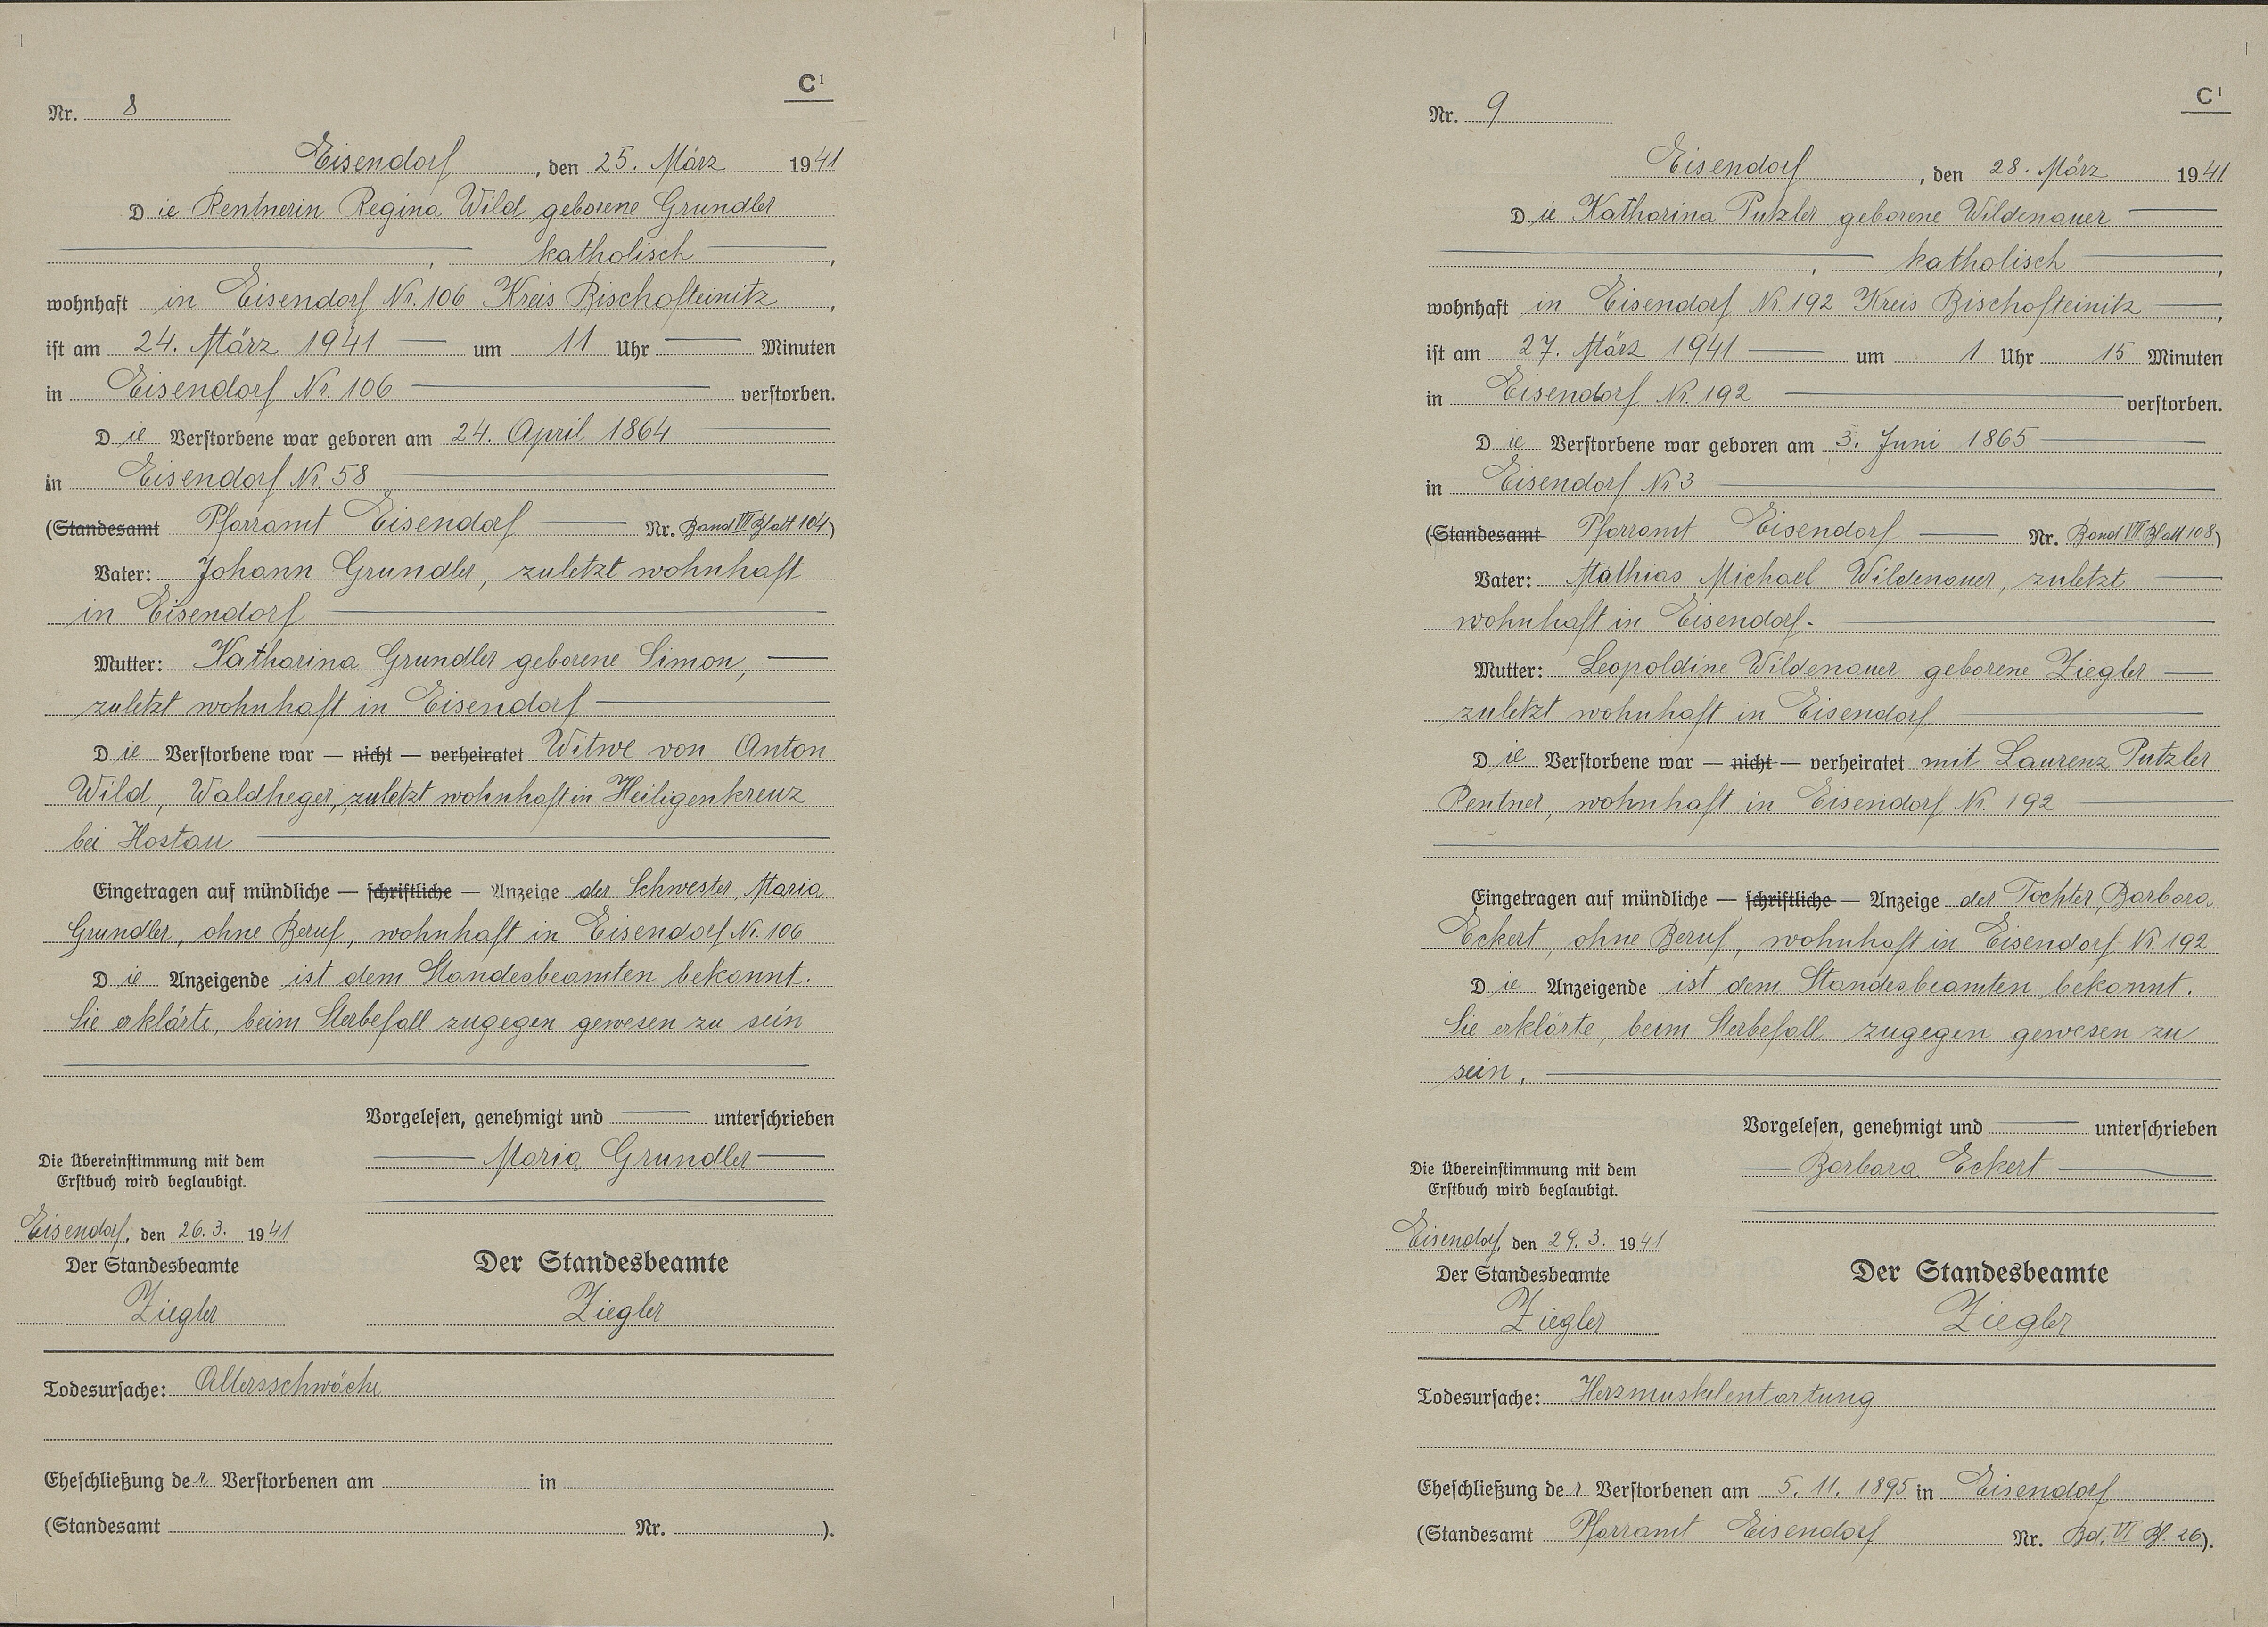 C¹
Nr. 8
Eisendorf, den 25. März 1941
Die Rentnerin Regina Wild geborene Grundler
, katholisch,
wohnhaft in Eisendorf Nr. 106 Kreis Bischofteinitz,
ist am 24. März 1941 um 11 Uhr Minuten
in Eisendorf Nr. 106 verstorben.
Die Verstorbene war geboren am 24. April 1864
in Eisendorf Nr. 58
(Standesamt Pfarramt Eisendorf Nr. Band VII Blatt 104)
Vater: Johann Grundler, zuletzt wohnhaft
in Eisendorf
Mutter: Katharina Grundler geborene Simon,
zuletzt wohnhaft in Eisendorf
Die Verstorbene war — nicht — verheiratet Witwe von Anton
Wild, Waldheger, zuletzt wohnhaft in Heiligenkreuz
bei Hostau
Eingetragen auf mündliche — schriftliche — Anzeige der Schwester, Maria
Grundler, ohne Beruf, wohnhaft in Eisendorf Nr. 106
Die Anzeigende ist dem Standesbeamten bekannt.
Sie erklärte, beim Sterbefall zugegen gewesen zu sein
Vorgelesen, genehmigt und unterschrieben
Maria Grundler
Die Übereinstimmung mit dem
Erstbuch wird beglaubigt.
Eisendorf, den 26.3. 1941
Der Standesbeamte
Ziegler
Der Standesbeamte
Ziegler
Todesursache: Altersschwäche
Eheschließung der Verstorbenen am in
(Standesamt Nr. ).
C¹
Nr. 9
Eisendorf, den 28. März 1941
Die Katharina Putzler geborene Wildenauer
, katholisch,
wohnhaft in Eisendorf Nr. 192 Kreis Bischofteinitz,
ist am 27. März 1941 um 1 Uhr 15 Minuten
in Eisendorf Nr. 192 verstorben.
Die Verstorbene war geboren am 3. Juni 1865
in Eisendorf Nr. 3
(Standesamt Pfarramt Eisendorf Nr. Band VII Blatt 108)
Vater: Mathias Michael Wildenauer, zuletzt
wohnhaft in Eisendorf.
Mutter: Leopoldine Wildenauer geborene Ziegler
zuletzt wohnhaft in Eisendorf
Die Verstorbene war — nicht — verheiratet mit Laurenz Putzler
Rentner, wohnhaft in Eisendorf Nr. 192
Eingetragen auf mündliche — schriftliche — Anzeige der Tochter, Barbara
Eckert, ohne Beruf, wohnhaft in Eisendorf Nr. 192
Die Anzeigende ist dem Standesbeamten bekannt.
Sie erklärte, beim Sterbefall zugegen gewesen zu
sein.
Vorgelesen, genehmigt und unterschrieben
Barbara Eckert
Die Übereinstimmung mit dem
Erstbuch wird beglaubigt.
Eisendorf, den 29.3. 1941
Der Standesbeamte
Ziegler
Der Standesbeamte
Ziegler
Todesursache: Herzmuskelentartung
Eheschließung der Verstorbenen am 5. 11. 1895 in Eisendorf
(Standesamt Pfarramt Eisendorf Nr. Bd. VI Bl. 26).